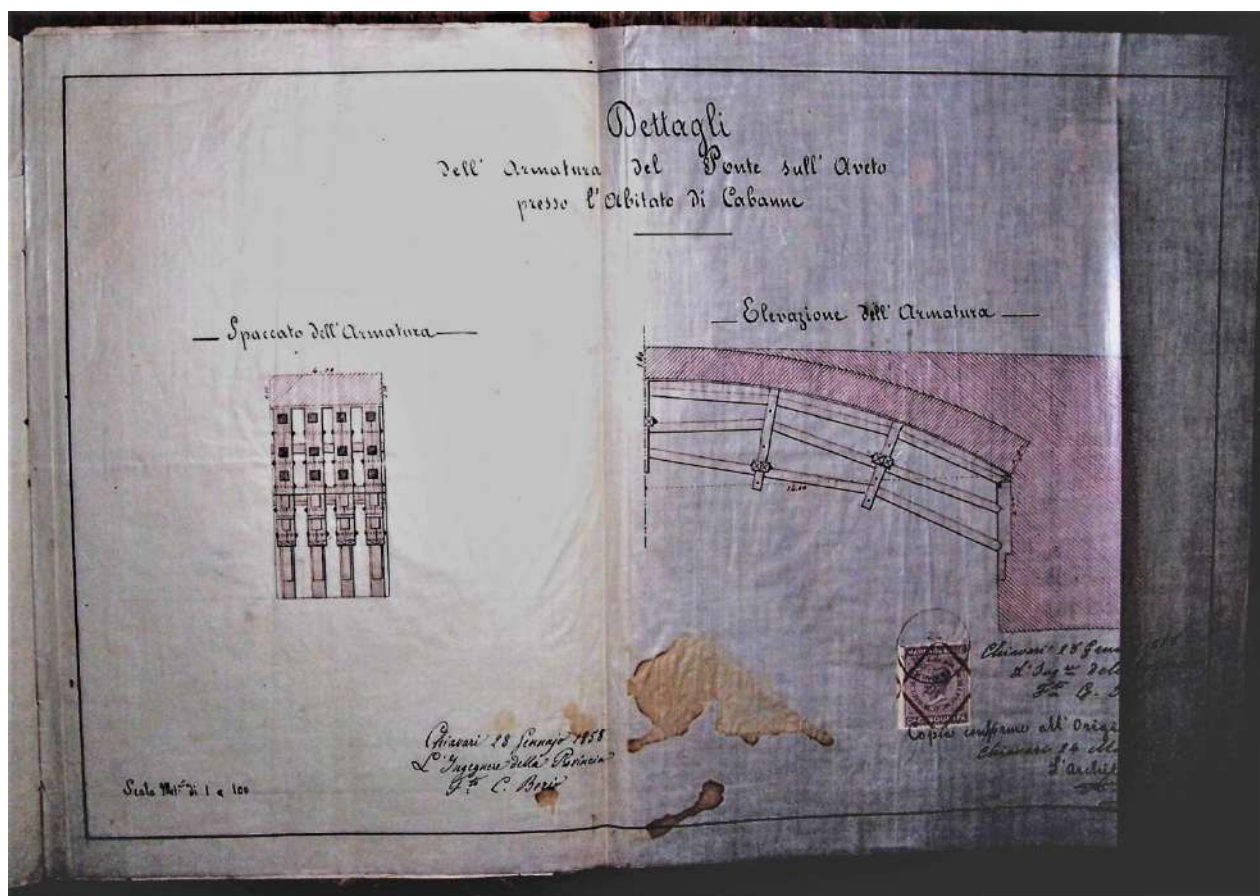 Dettagli
dell' Armatura del Ponte sull' Aveto
presso l'Abitato di Cabanne
Spaccato dell'Armatura
Elevazione dell' Armatura
4.00
1.00
12.00
Chiavari 28 Gennajo 1858
L'Ingegnere della Provincia
Fto C. Berio
Scala Metca di 1 a 100
Chiavari 28 Genn
L'Ingre dell
Fto
Copia conforme all' Origi
Chiavari 24
L'Archit